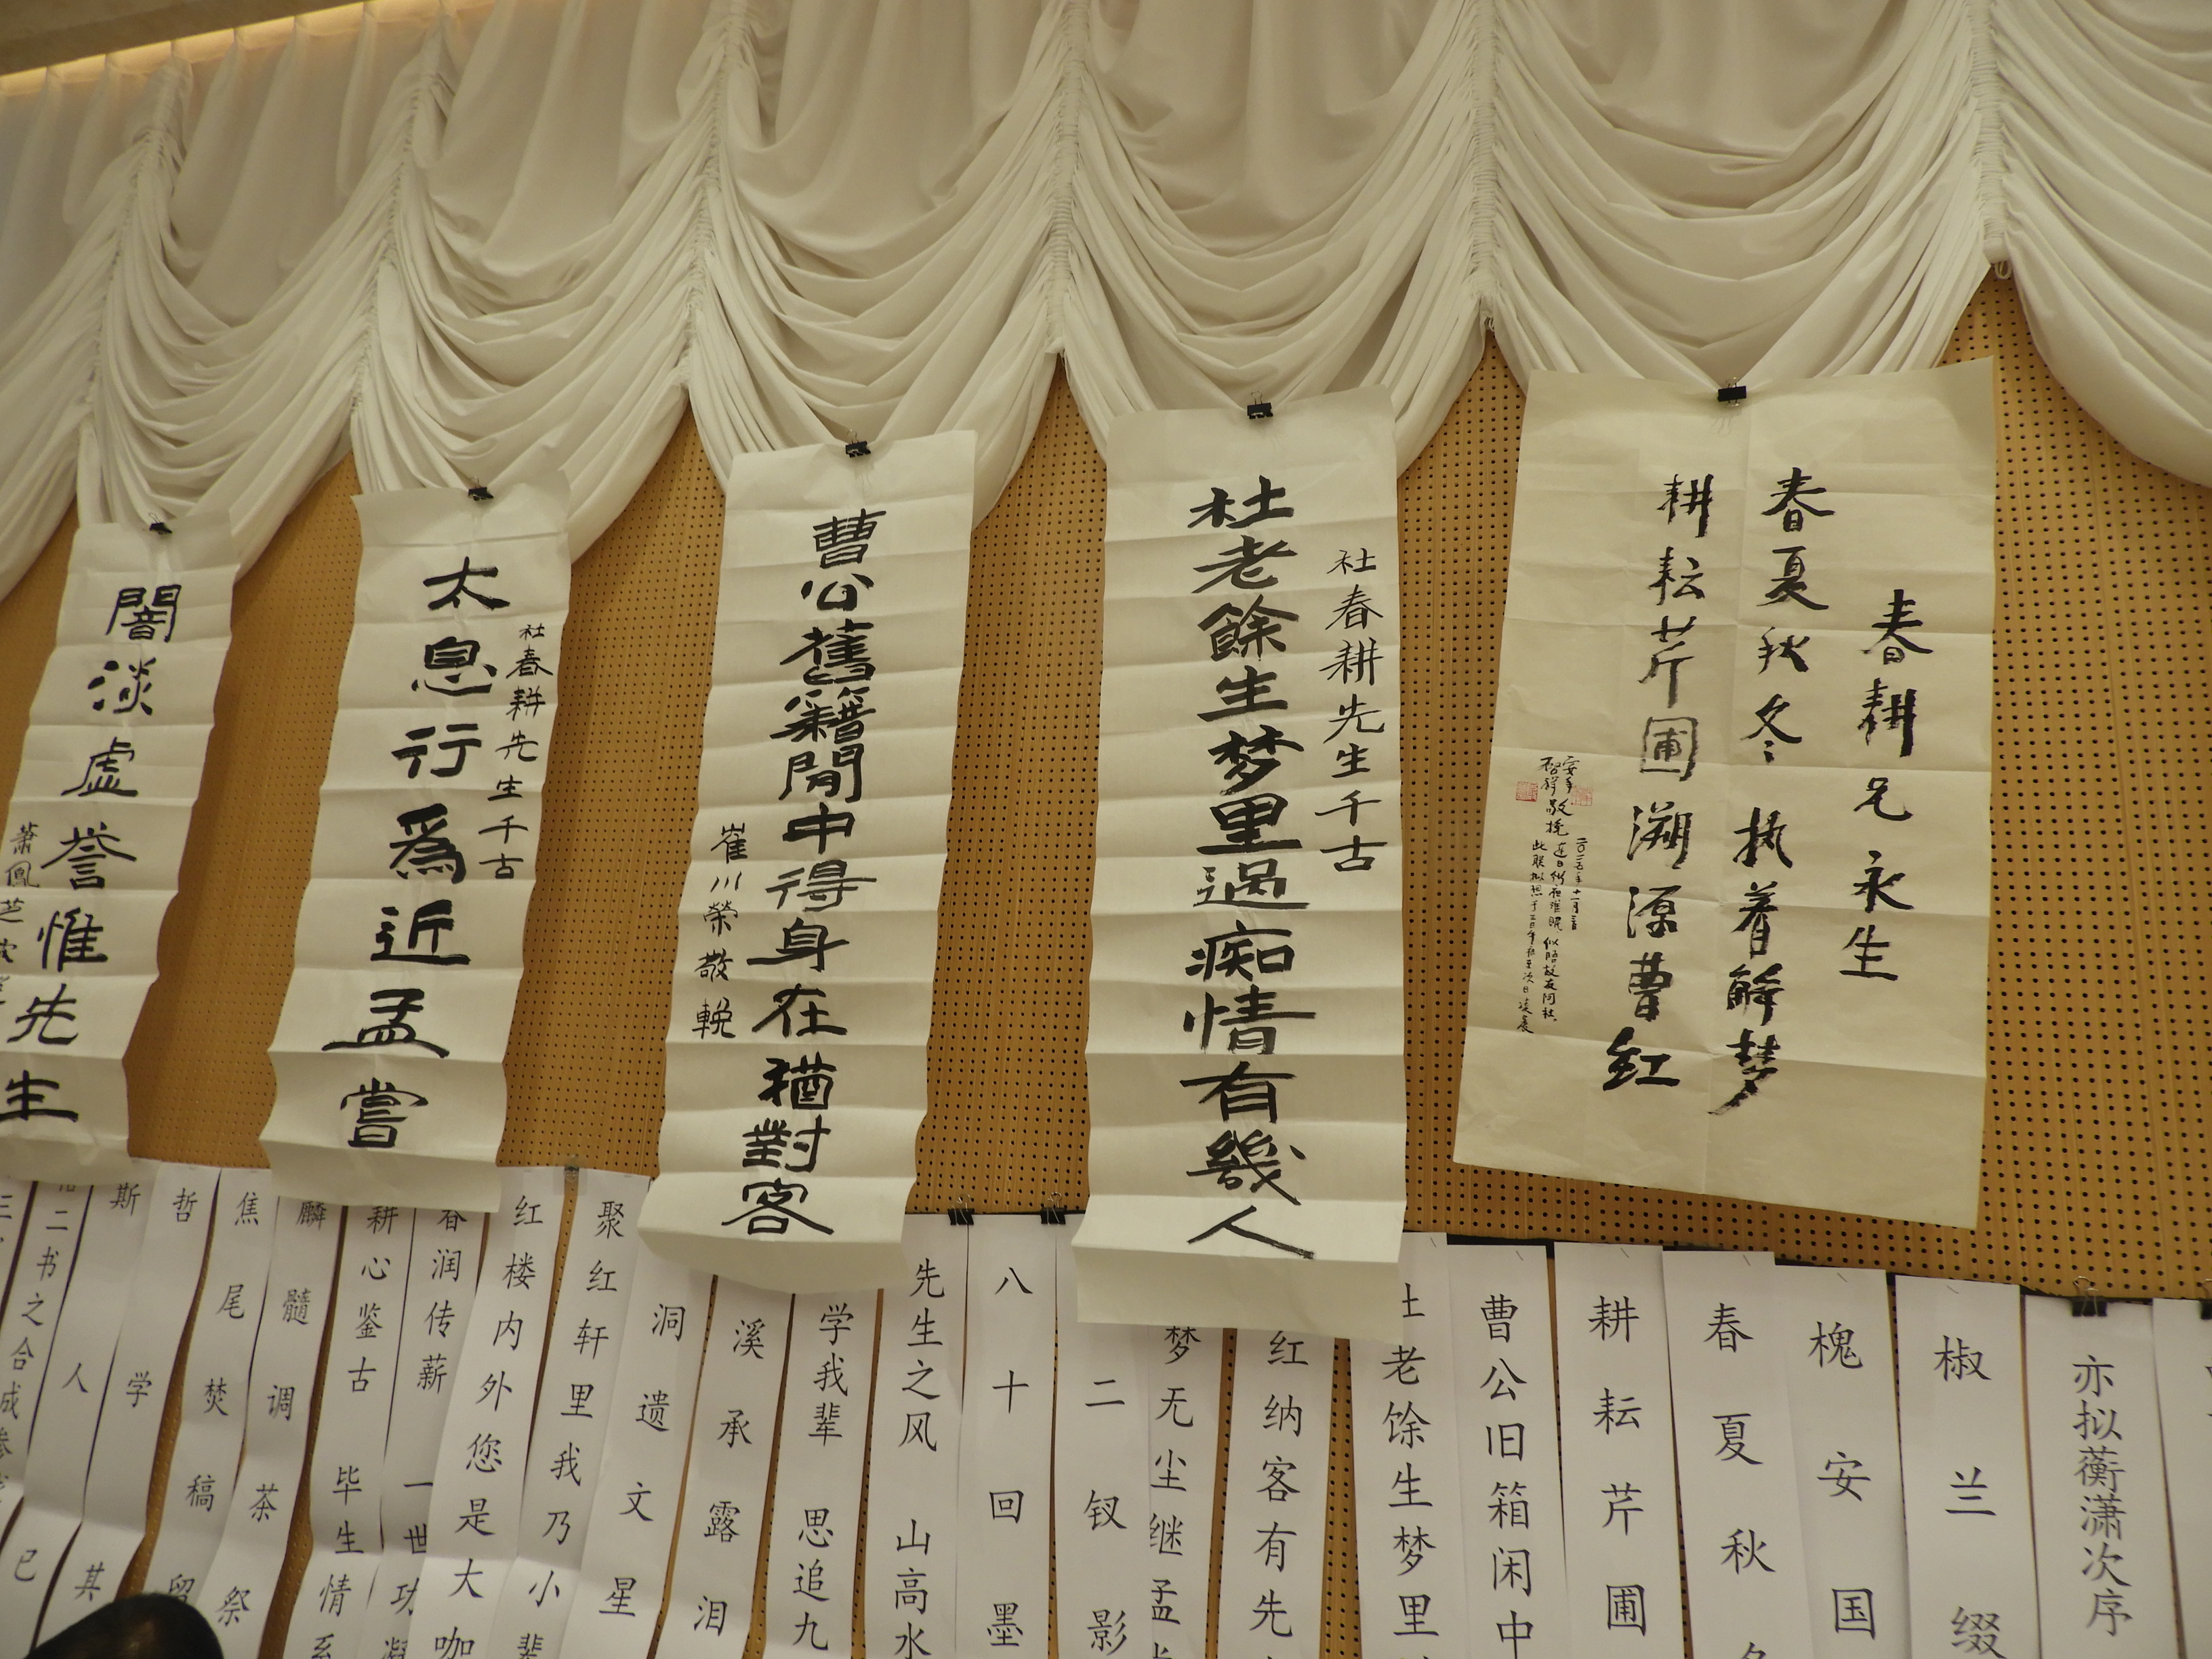 春耕兄永生
春夏秋冬执着解梦
耕耘芹圃溯源曹红
敬挽
杜春耕先生千古
杜老餘生梦里過痴情有幾人
曹公舊籍閒中得身在猶對客
崔川榮敬輓
杜春耕先生千古
太息行爲近孟嘗
闇淡虚誉惟先生
蕭鳳芝
亦拟蘅潇次序
椒兰缀
槐安国
春夏秋
耕耘芹圃
曹公旧箱闲中
老馀生梦里
红纳客有先
梦无尘继孟
二钗影
八十回墨
先生之风 山高水
学我辈 思追九
溪承露泪
洞遗文星
聚红轩里我乃小辈
红楼内外您是大咖
春润传薪 一世功凝
耕心鉴古 毕生情系
麟髓调茶祭
焦尾焚稿留
哲
斯学其
人
二书之合成
已